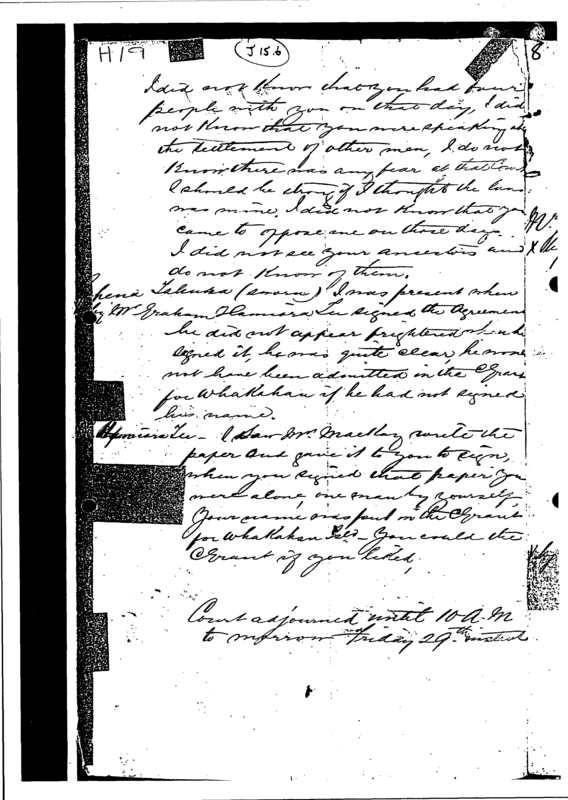 H19
J 15.6
8
I did not know that you had four
people with you on that day, I did
not know that you were speaking at
the settlement of other men, I do not
know there was any fear at that
I should be strong if I thought the land
was mine, I did not know that you
came to oppose me on those days.
I did not see your ancestors and
do not know of them.
(sworn) I was present when
by Mr Graham Hamiora Tu signed the Agreement
he did not appear frightened when he
signed it, he was quite clear, he
not have been admitted in the CGrant
for Whakahau if he had not signed
his name.
Hamiora Tu - I saw Mr Mackay write the
paper and gave it to you to sign,
when you signed that paper you
were alone, one man by yourself,
Your name was put in the CGrant
for Whakahau Isld - You could the
CGrant if you liked,
by
Court adjourned until 10 A.M
to morrow Friday 29th instant